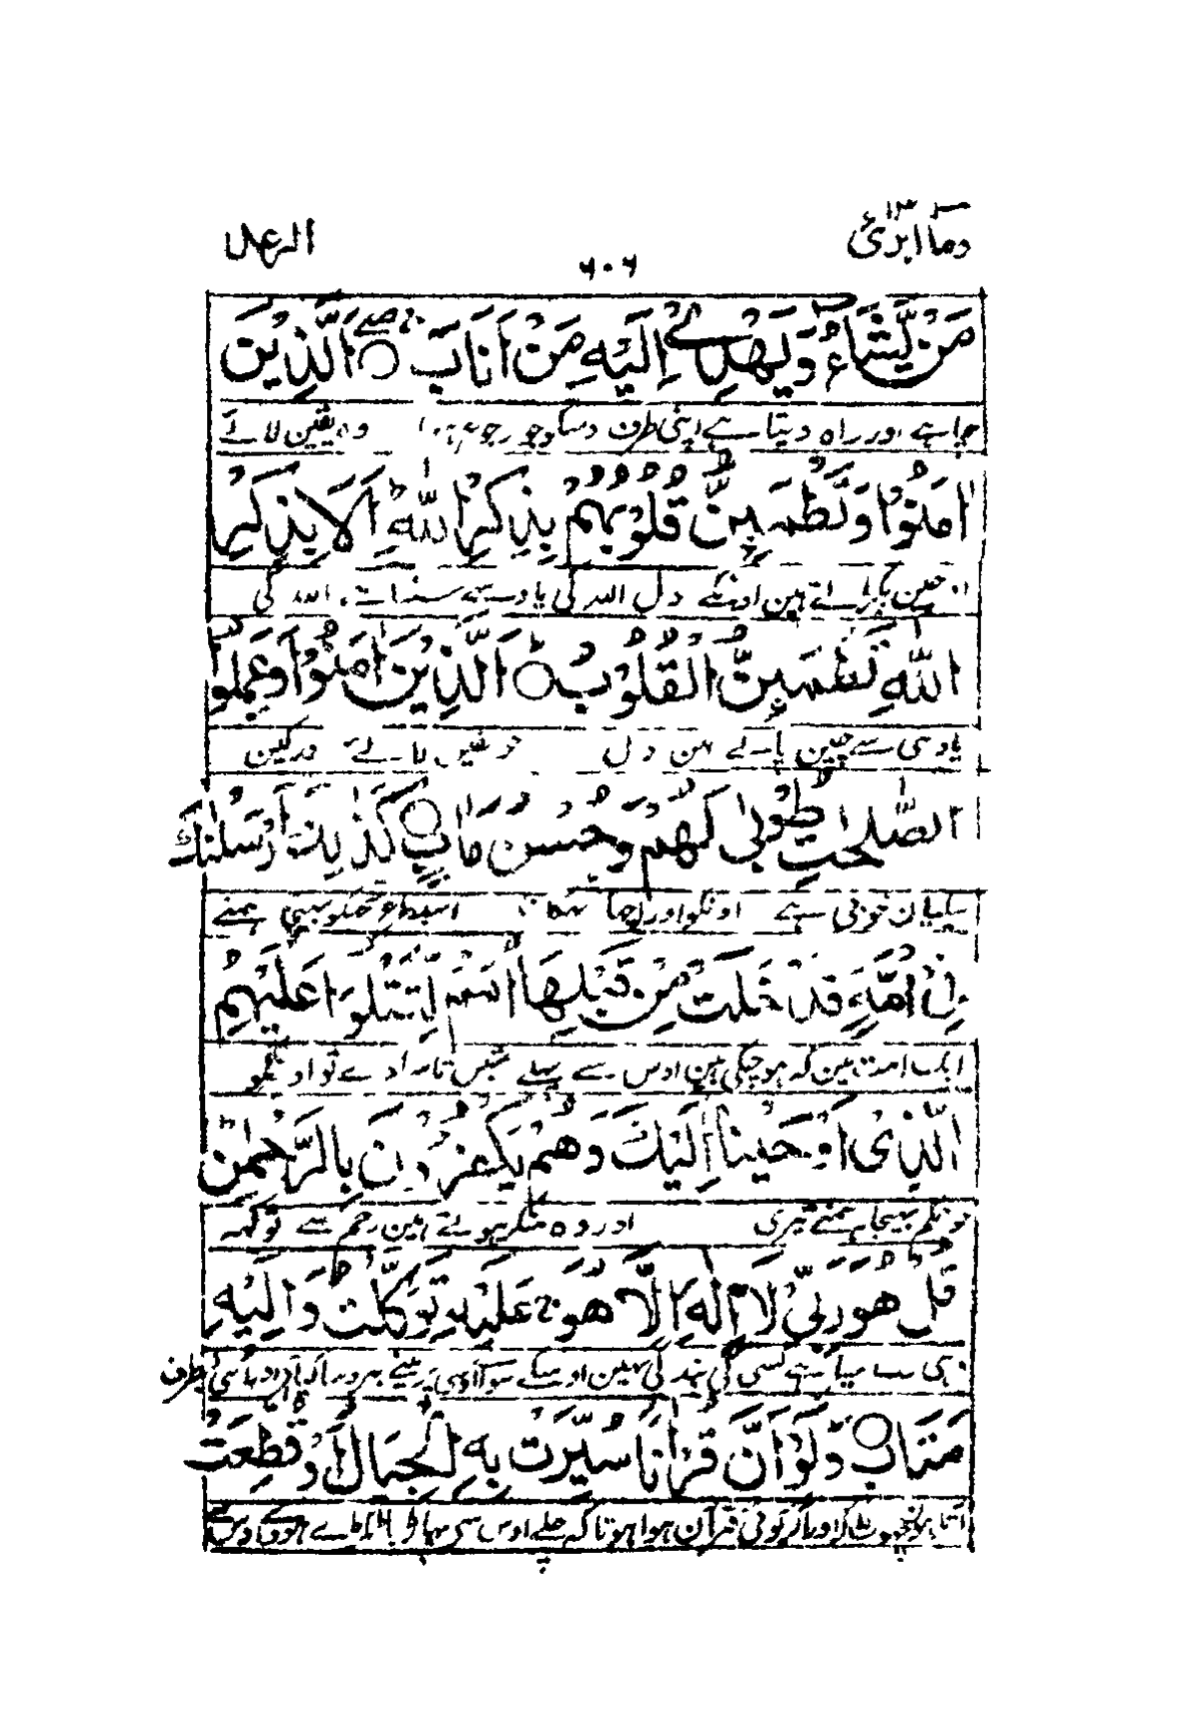 وما ابرئ ١٣
٦٠٦
الرعد
مَنْ يَّشَاءُ وَيَهْدِيْ اِلَيْهِ مَنْ اَنَابَ ○ اَلَّذِيْنَ
چاہے اور راہ دیتا ہے اپنی طرف وسکو جو رجوع ہوا وہ یقین لائے
اٰمَنُوْا وَتَطْمَىِٕنُّ قُلُوْبُهُمْ بِذِكْرِ اللّٰهِ اَلَا بِذِكْرِ
چین پکڑاتے ہین اونکے دل اللہ کی یاد سے سنتا ہے اللہ کی
اللّٰهِ تَطْمَىِٕنُّ الْقُلُوْبُ ○ اَلَّذِيْنَ اٰمَنُوْا وَعَمِلُوا
یاد ہی سے چین پاتے ہین دل جو یقین لائے اور کین
الصّٰلِحٰتِ طُوْبٰى لَهُمْ وَحُسْنُ مَاٰبٍ ○ كَذٰلِكَ اَرْسَلْنٰكَ
نیکیان خوبی ہے اونکو اور اچھا ٹھکانا اسیطرح تجکو بھیجا ہمنے
فِيْ اُمَّةٍ قَدْ خَلَتْ مِنْ قَبْلِهَا اُمَمٌ لِّتَتْلُوَا عَلَيْهِمُ
ایک امت مین کہ ہو چکی ہین اوس سے پہلے امتین تا سنا دے تو اونکو
الَّذِيْ اَوْحَيْنَا اِلَيْكَ وَهُمْ يَكْفُرُوْنَ بِالرَّحْمٰنِ
جو حکم بھیجا ہمنے تیری اور وہ منکر ہوتے ہین رحمن سے تو کہہ
قُلْ هُوَ رَبِّيْ لَا اِلٰهَ اِلَّا هُوَ عَلَيْهِ تَوَكَّلْتُ وَاِلَيْهِ
وہی رب میرا ہے کسی کی بندگی نہین اوسکے سوا اوسی پر مینے بھروسا کیا اور اوسی طرف
مَتَابِ ○ وَلَوْ اَنَّ قُرْاٰنًا سُيِّرَتْ بِهِ الْجِبَالُ اَوْ قُطِّعَتْ
آتا ہون چھوٹ کر اور اگر کوئی قرآن ہوا ہوتا کہ چلے اوس سے پہاڑ یا ٹکڑے ہووے اوس سے